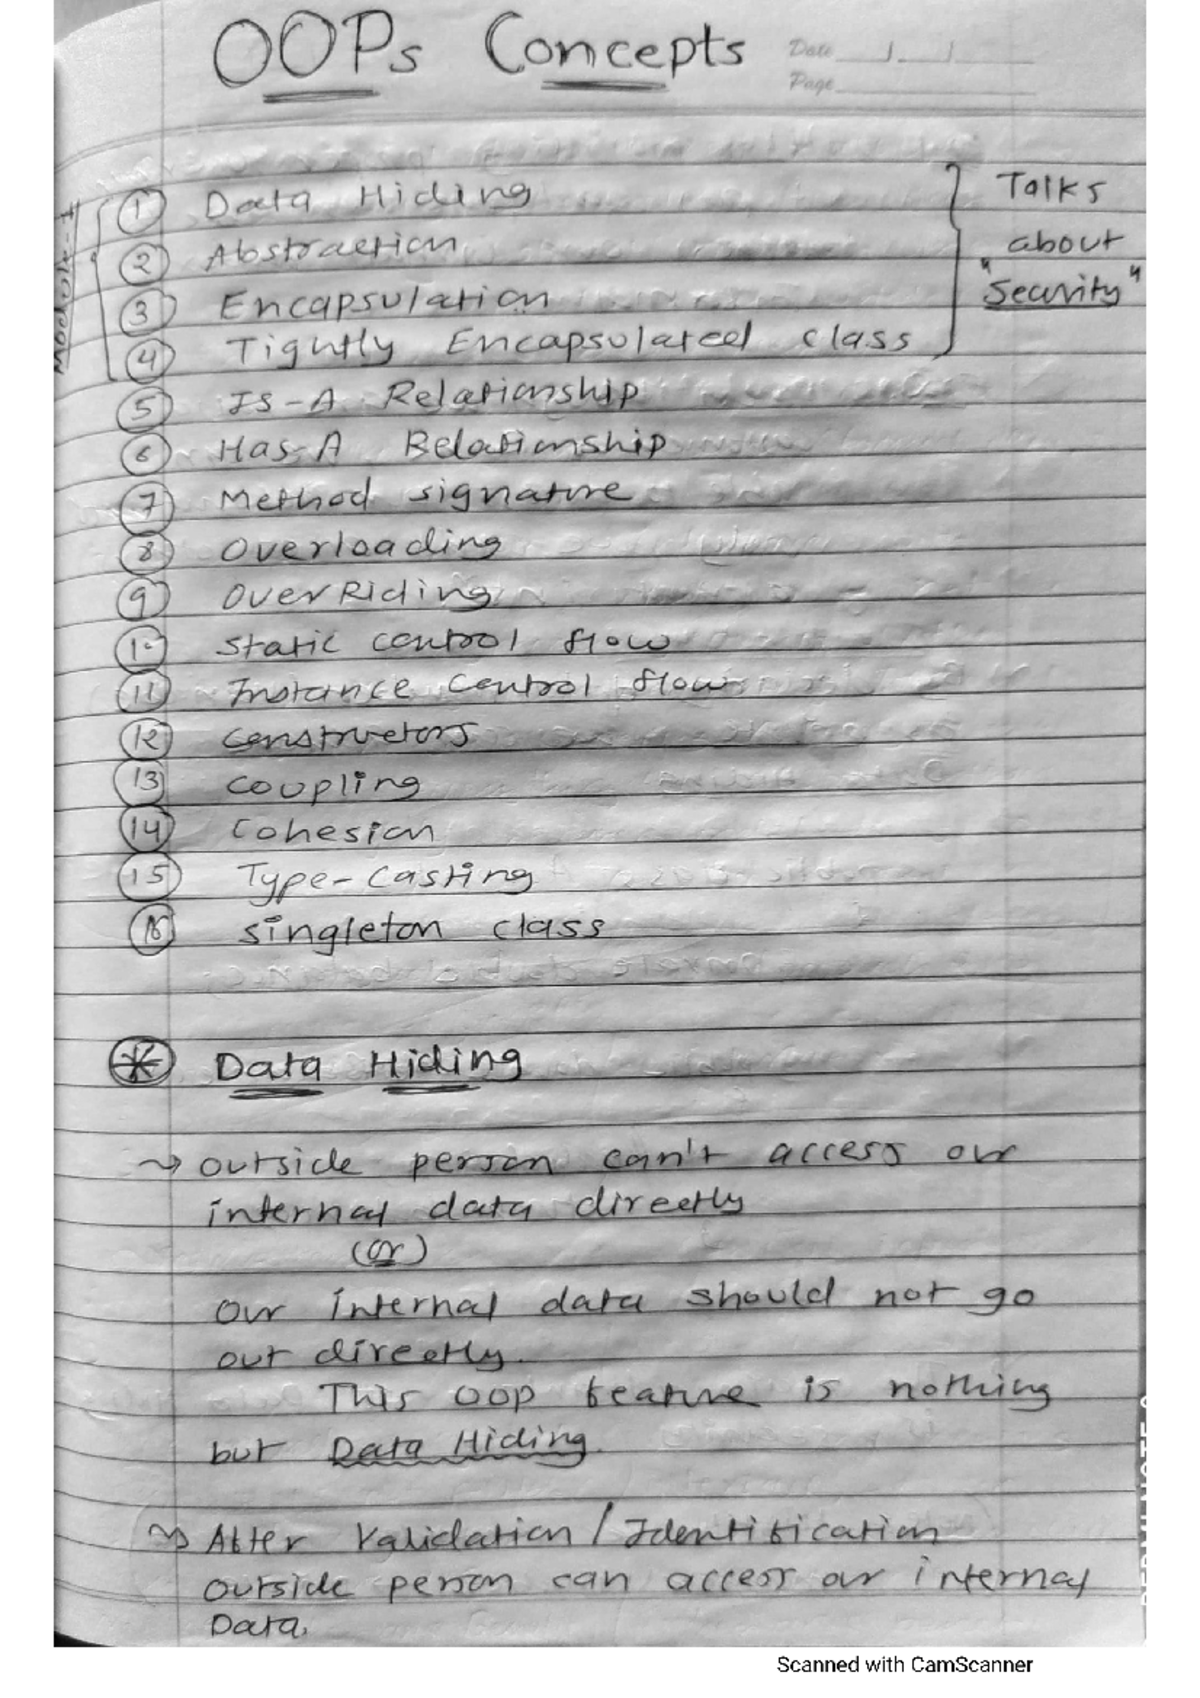 OOPs Concepts
Date
Page
Module-I
① Data Hiding
② Abstraction
③ Encapsulation
④ Tightly Encapsulated class
Talks
about
"Security"
⑤ IS-A Relationship
⑥ Has-A Relationship
⑦ Method signature
⑧ Overloading
⑨ OverRiding
⑩ Static control flow
⑪ Instance control flow
⑫ constructors
⑬ coupling
⑭ cohesion
⑮ Type-casting
⑯ singleton class
Data Hiding
→ outside person can't access our
internal data directly
(or)
our internal data should not go
out directly.
This oop feature is nothing
but Data Hiding.
→ After Validation / Identification
outside person can access our internal
Data.
Scanned with CamScanner